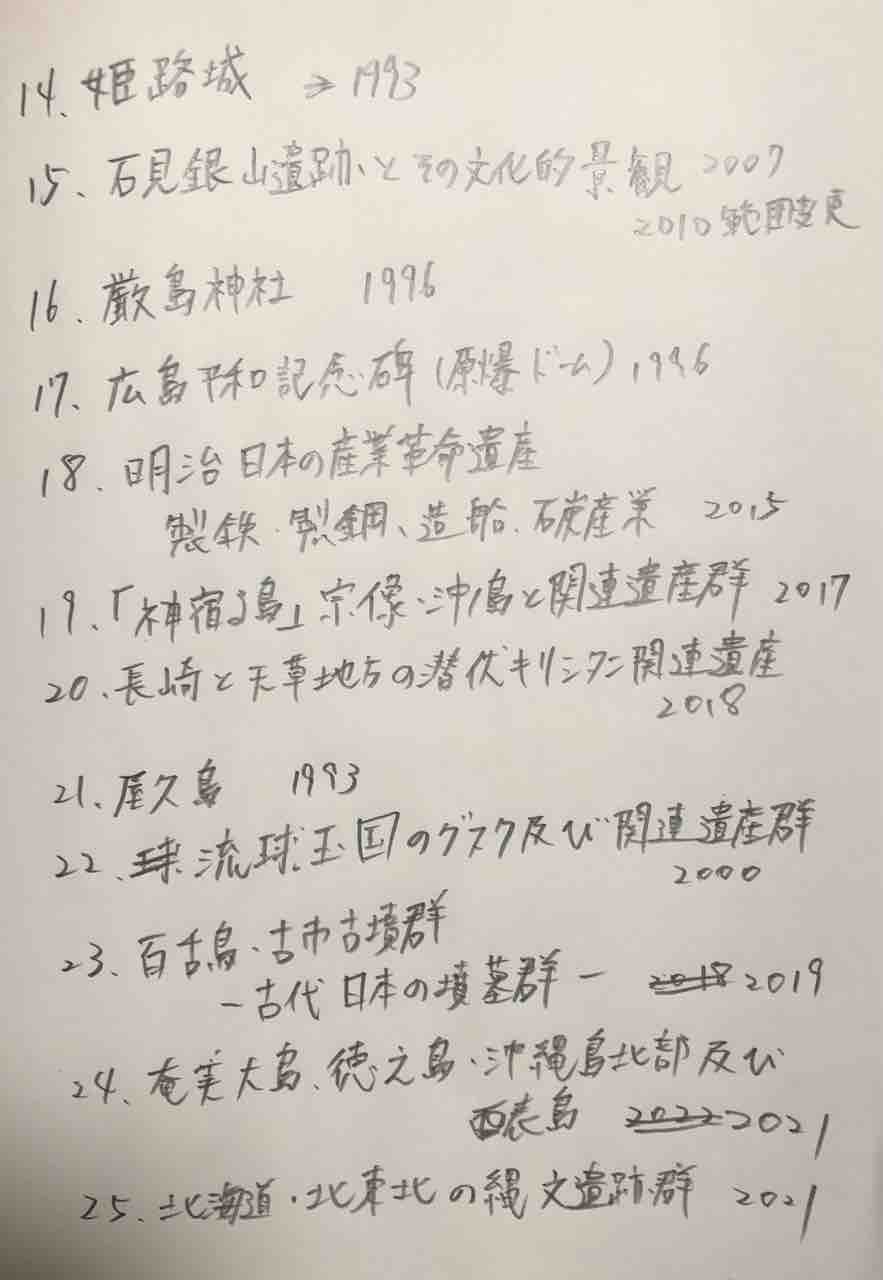 14. 姫路城 ⇒ 1993
15、石見銀山遺跡とその文化的景観 2007
2010範囲変更
16、厳島神社 1996
17、広島平和記念碑(原爆ドーム) 1996
18、明治日本の産業革命遺産
製鉄・製鋼、造船、石炭産業 2015
19、「神宿る島」宗像・沖ノ島と関連遺産群 2017
20、長崎と天草地方の潜伏キリシタン関連遺産
2018
21、屋久島 1993
22、球 流球王国のグスク及び関連遺産群
2000
23、百舌鳥・古市古墳群
－古代日本の墳墓群－ 2018 2019
24、奄美大島、徳之島・沖縄島北部及び
西表島 2022 2021
25、北海道・北東北の縄文遺跡群 2021